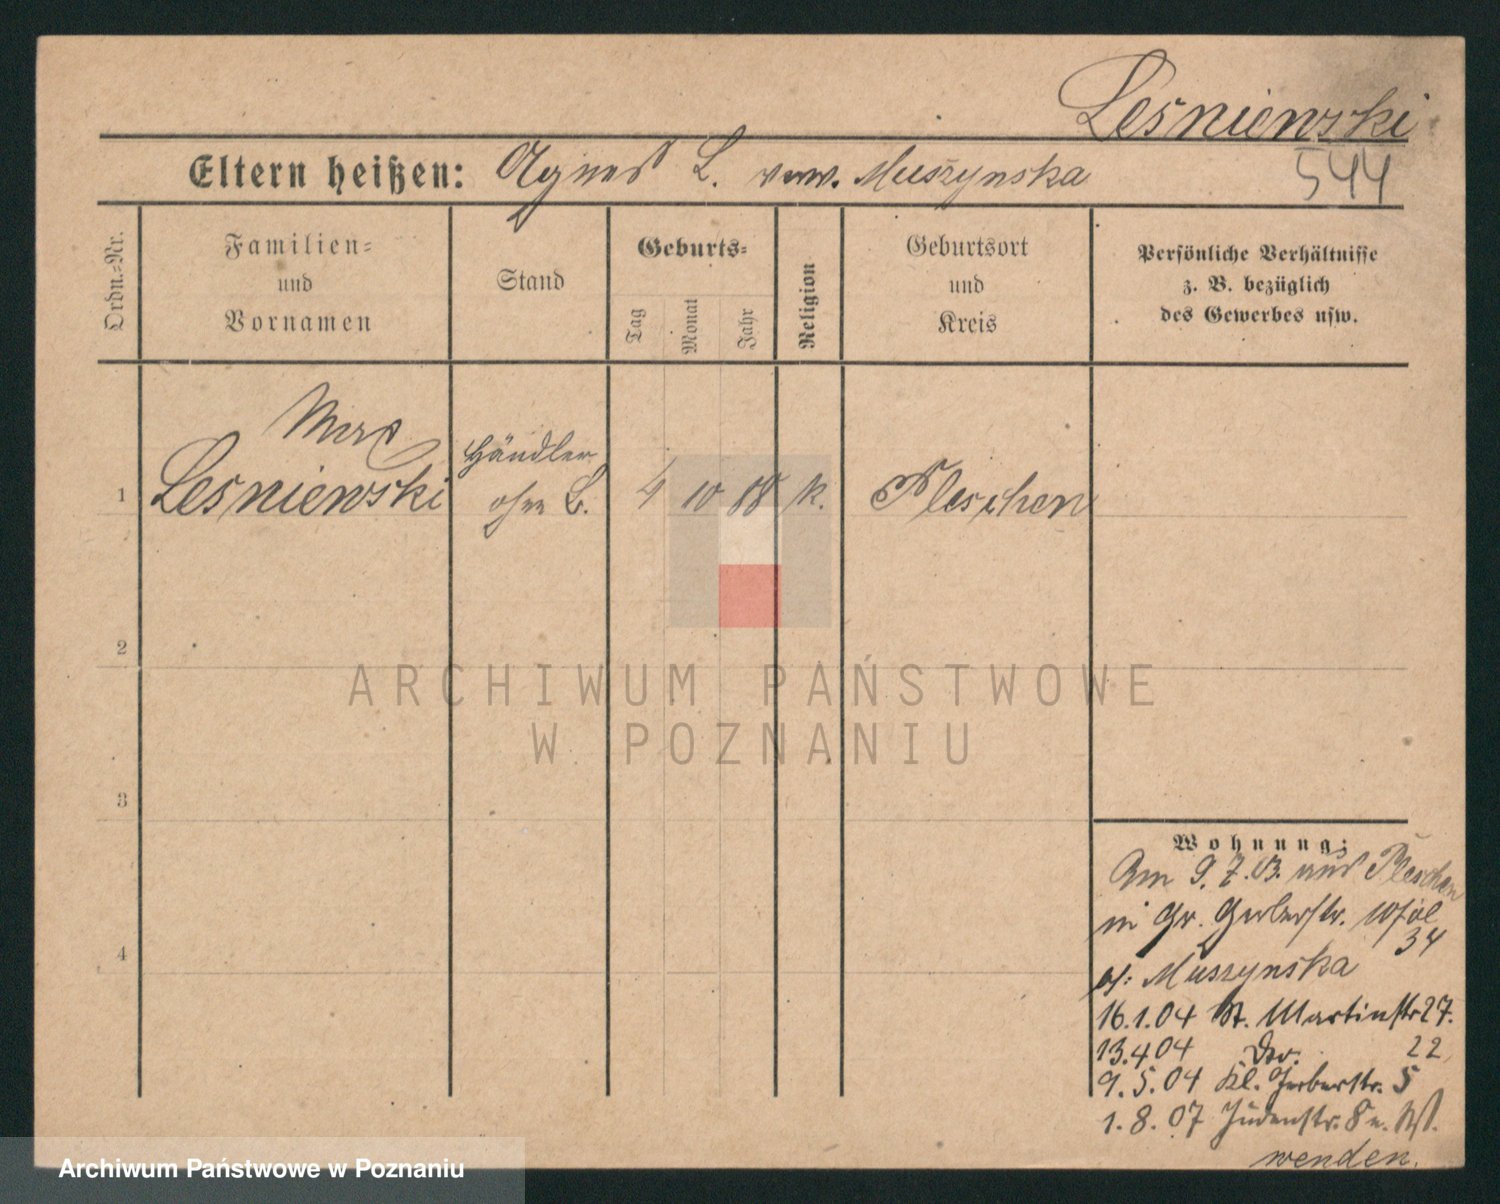 Lesniewski
544
Eltern heißen: Agnes L. verw. Muszynska
Ordn.-Nr.
Familien-
und
Vornamen
Stand
Geburts-
Tag
Monat
Jahr
Religion
Geburtsort
und
Kreis
Persönliche Verhältnisse
z. B. bezüglich
des Gewerbes usw.
Händler
1 Lesniewski
ohne
4 10 88 k. Pleschen
2
ARCHIWUM PAŃSTWOWE
W POZNANIU
3
Wohnung:
Am 9.7.03. aus Pleschen
4
in Gr. Gerberstr.
34
Muszynska
16.1.04 St. Martinstr 27.
13.4 04 22
9.5.04 Kl. Gerberstr. 5
1.8.07 Judenstr. 8
wenden.
Archiwum Państwowe w Poznaniu